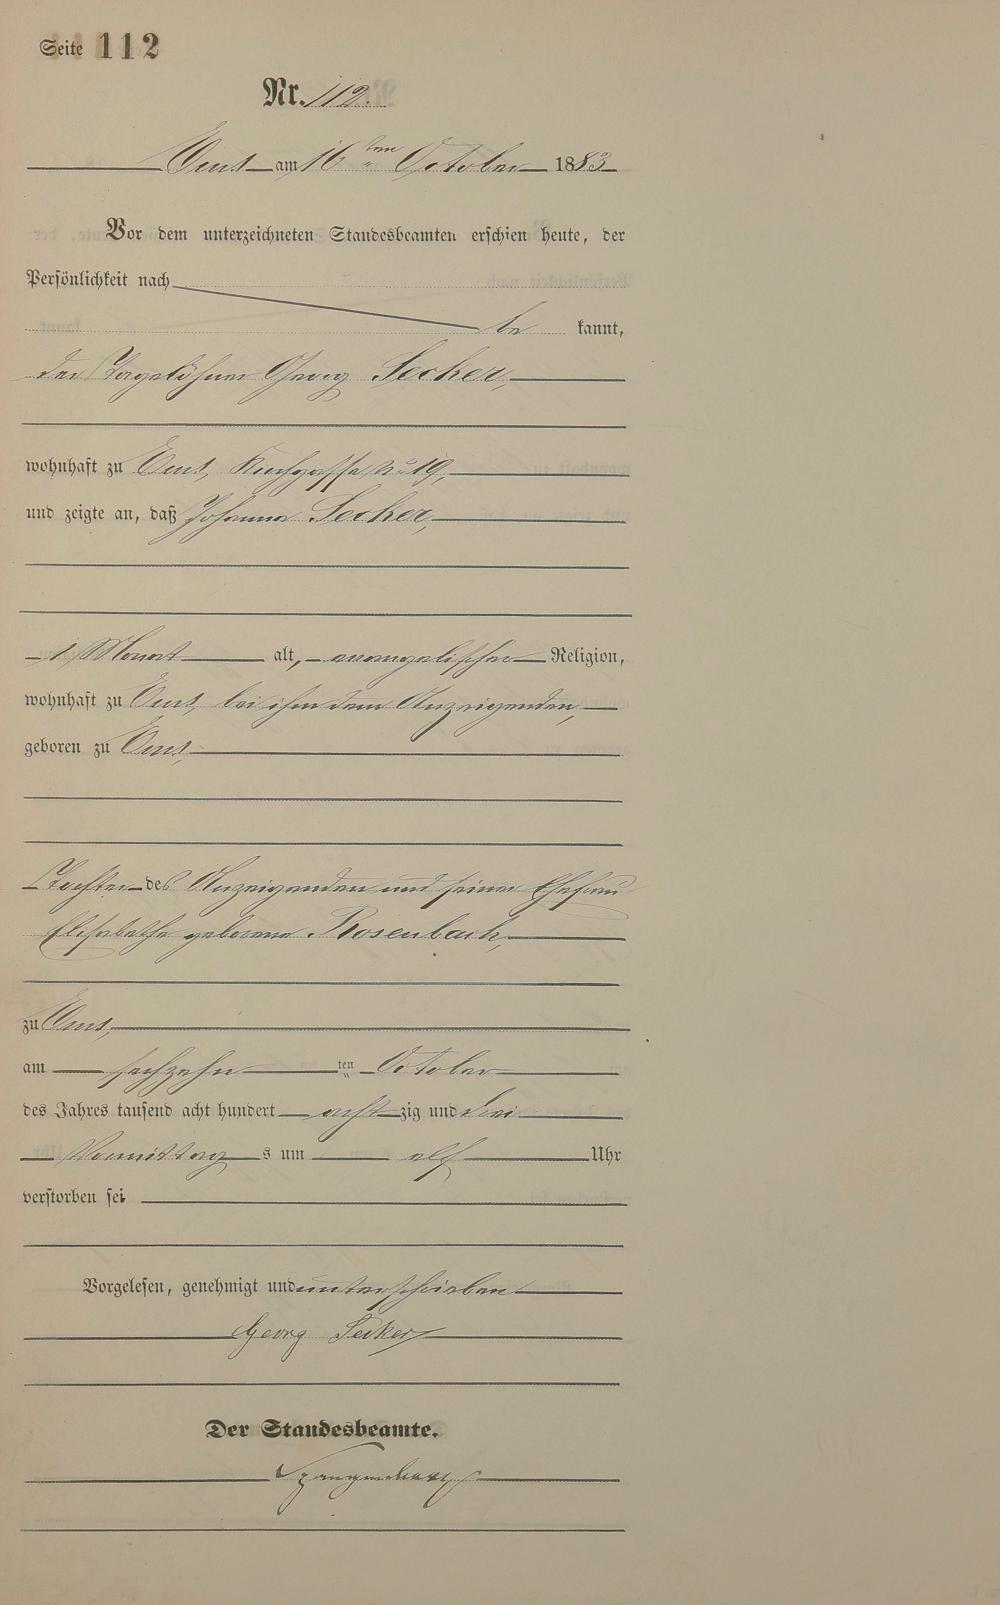 Seite 112
Nr. 112.
Ems am 16ten October 1883
Vor dem unterzeichneten Standesbeamten erschien heute, der
Persönlichkeit nach
be kannt,
der Tagelöhner Georg Secker,
wohnhaft zu Ems, Kirchgasse No 19,
und zeigte an, daß Johanna Secker,
1 Monat alt, evangelischer Religion,
wohnhaft zu Ems, bei ihm dem Anzeigenden,
geboren zu Ems,
Tochter des Anzeigenden und seiner Ehefrau
Elisabethe geborene Rosenbach,
zu Ems,
am sechzehn ten October
des Jahres tausend acht hundert acht zig und drei
Vormittag s um elf Uhr
verstorben sei
Vorgelesen, genehmigt und unterschrieben
Georg Secker
Der Standesbeamte.